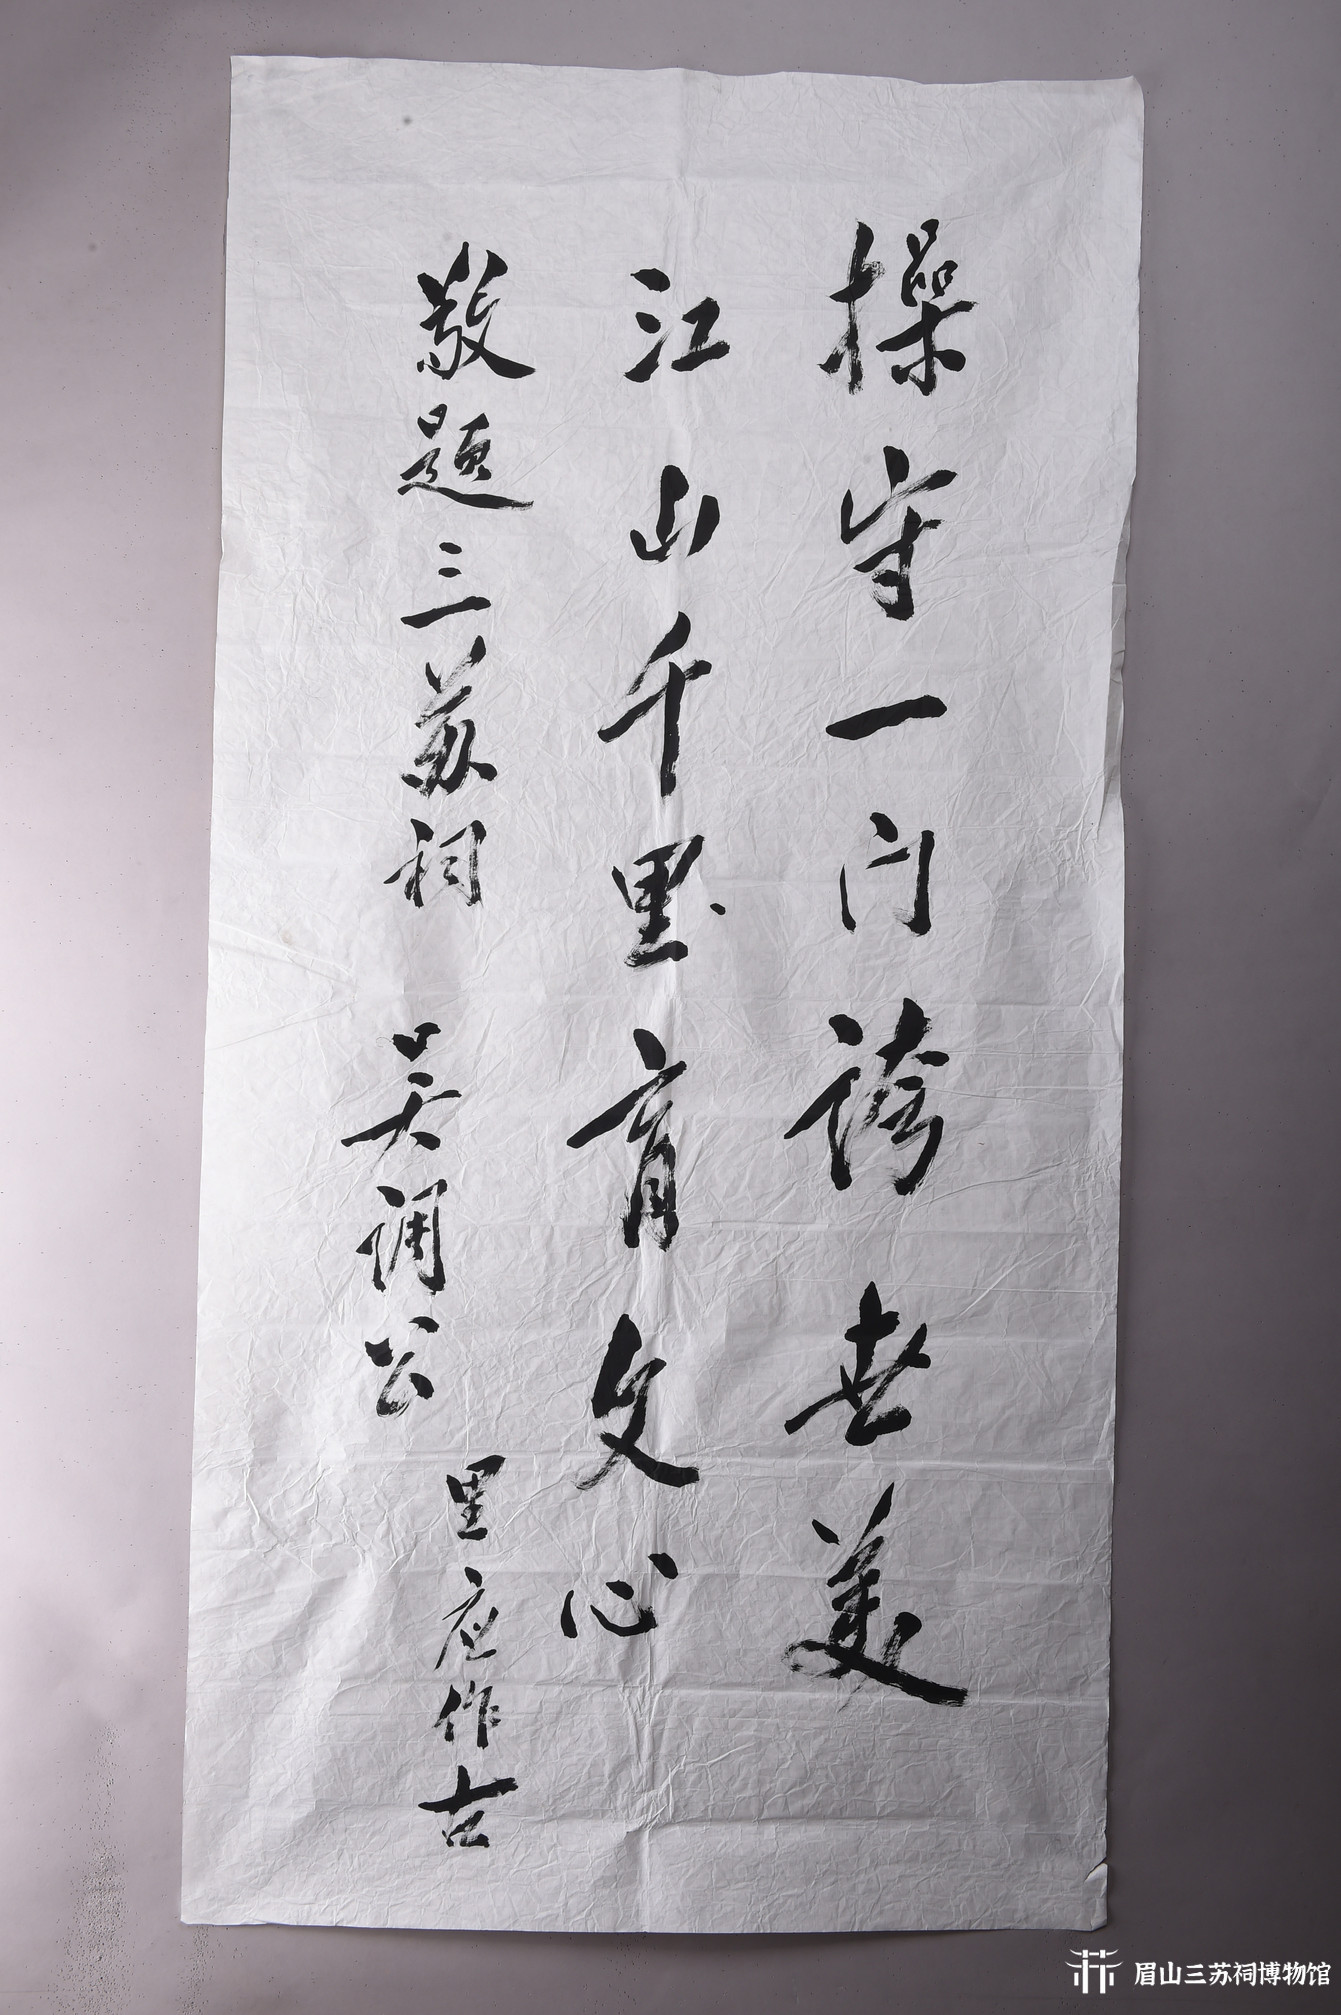 操守一门誇世美
江山千里育文心
敬题三苏祠 吴调公
里应作古
眉山三苏祠博物馆